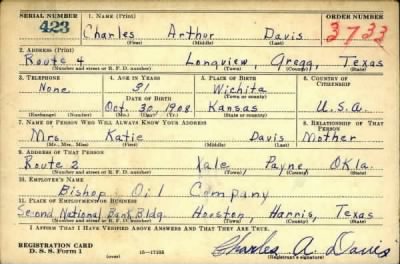 SERIAL NUMBER 1. NAME (Print) ORDER NUMBER
423 Charles Arthur Davis 3733
(First) (Middle) (Last)
2. ADDRESS (Print)
Route 4 Longview, Gregg, Texas
(Number and street or R. F. D. number) (Town) (County) (State)
3. TELEPHONE 4. AGE IN YEARS 5. PLACE OF BIRTH 6. COUNTRY OF CITIZENSHIP
None 31 Wichita
DATE OF BIRTH (Town or county)
Oct. 30, 1908 Kansas U.S.A.
(Exchange) (Number) (Mo.) (Day) (Yr.) (State or country)
7. NAME OF PERSON WHO WILL ALWAYS KNOW YOUR ADDRESS 8. RELATIONSHIP OF THAT PERSON
Mrs. Katie Davis Mother
(Mr., Mrs., Miss) (First) (Middle) (Last)
9. ADDRESS OF THAT PERSON
Route 2 Yale, Payne, Okla.
(Number and street or R. F. D. number) (Town) (County) (State)
10. EMPLOYER'S NAME
Bishop Oil Company
11. PLACE OF EMPLOYMENT OR BUSINESS
Second National Bank Bldg. Houston, Harris, Texas
(Number and street or R. F. D. number) (Town) (County) (State)
I AFFIRM THAT I HAVE VERIFIED ABOVE ANSWERS AND THAT THEY ARE TRUE.
REGISTRATION CARD
D. S. S. Form 1 (over) Charles A Davis
(Registrant's signature)